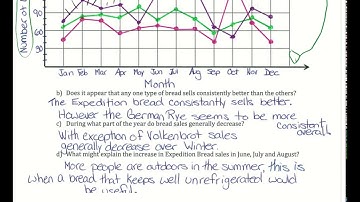 Number of
90
60
30
Jan Feb Mar Apr May Jun Jul Aug Sep Oct Nov Dec
Month
b) Does it appear that any one type of bread sells consistently better than the others?
The Expedition bread consistently sells better.
However the German Rye seems to be more
consistent
overall
c) During what part of the year do bread sales generally decrease?
With exception of Volkenbrot sales
generally decrease over Winter.
d) What might explain the increase in Expedition Bread sales in June, July and August?
More people are outdoors in the summer, this is
when a bread that keeps well unrefrigerated would
be useful